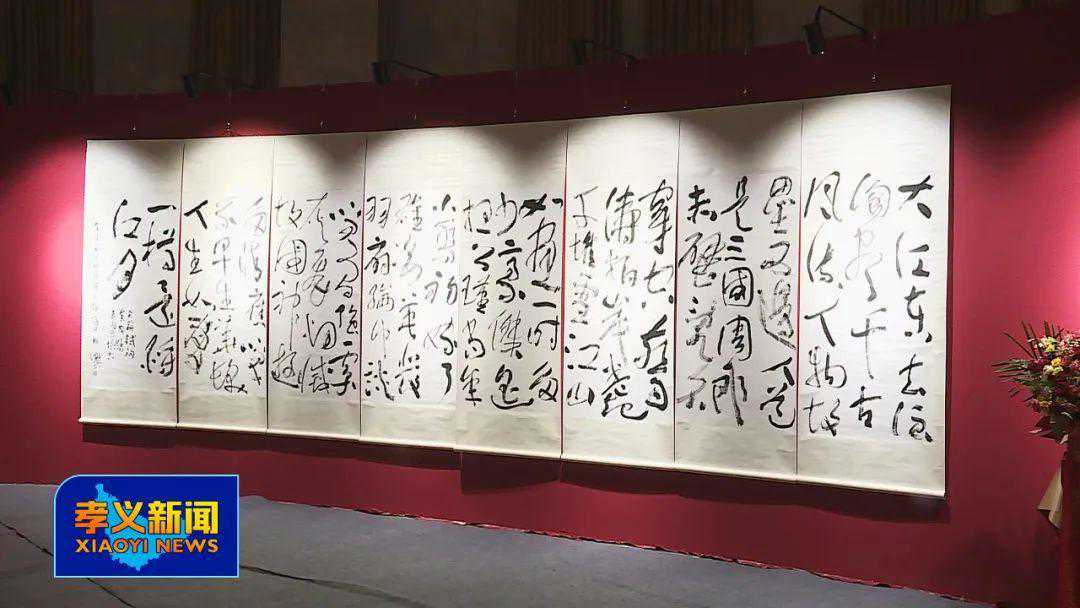 大江东去浪
淘尽千古
风流人物故
垒西边人道
是三國周郎
赤壁乱石
穿空惊
涛拍岸卷起
千堆雪江山
如画一时多
少豪傑遥
想公瑾当年
小乔初嫁了
雄姿英发
羽扇纶巾谈
笑间
灰飞烟灭
故國神遊
多情应笑
我早生华髮
人生如梦
一樽还酹
江月
孝义新闻
XIAOYI NEWS